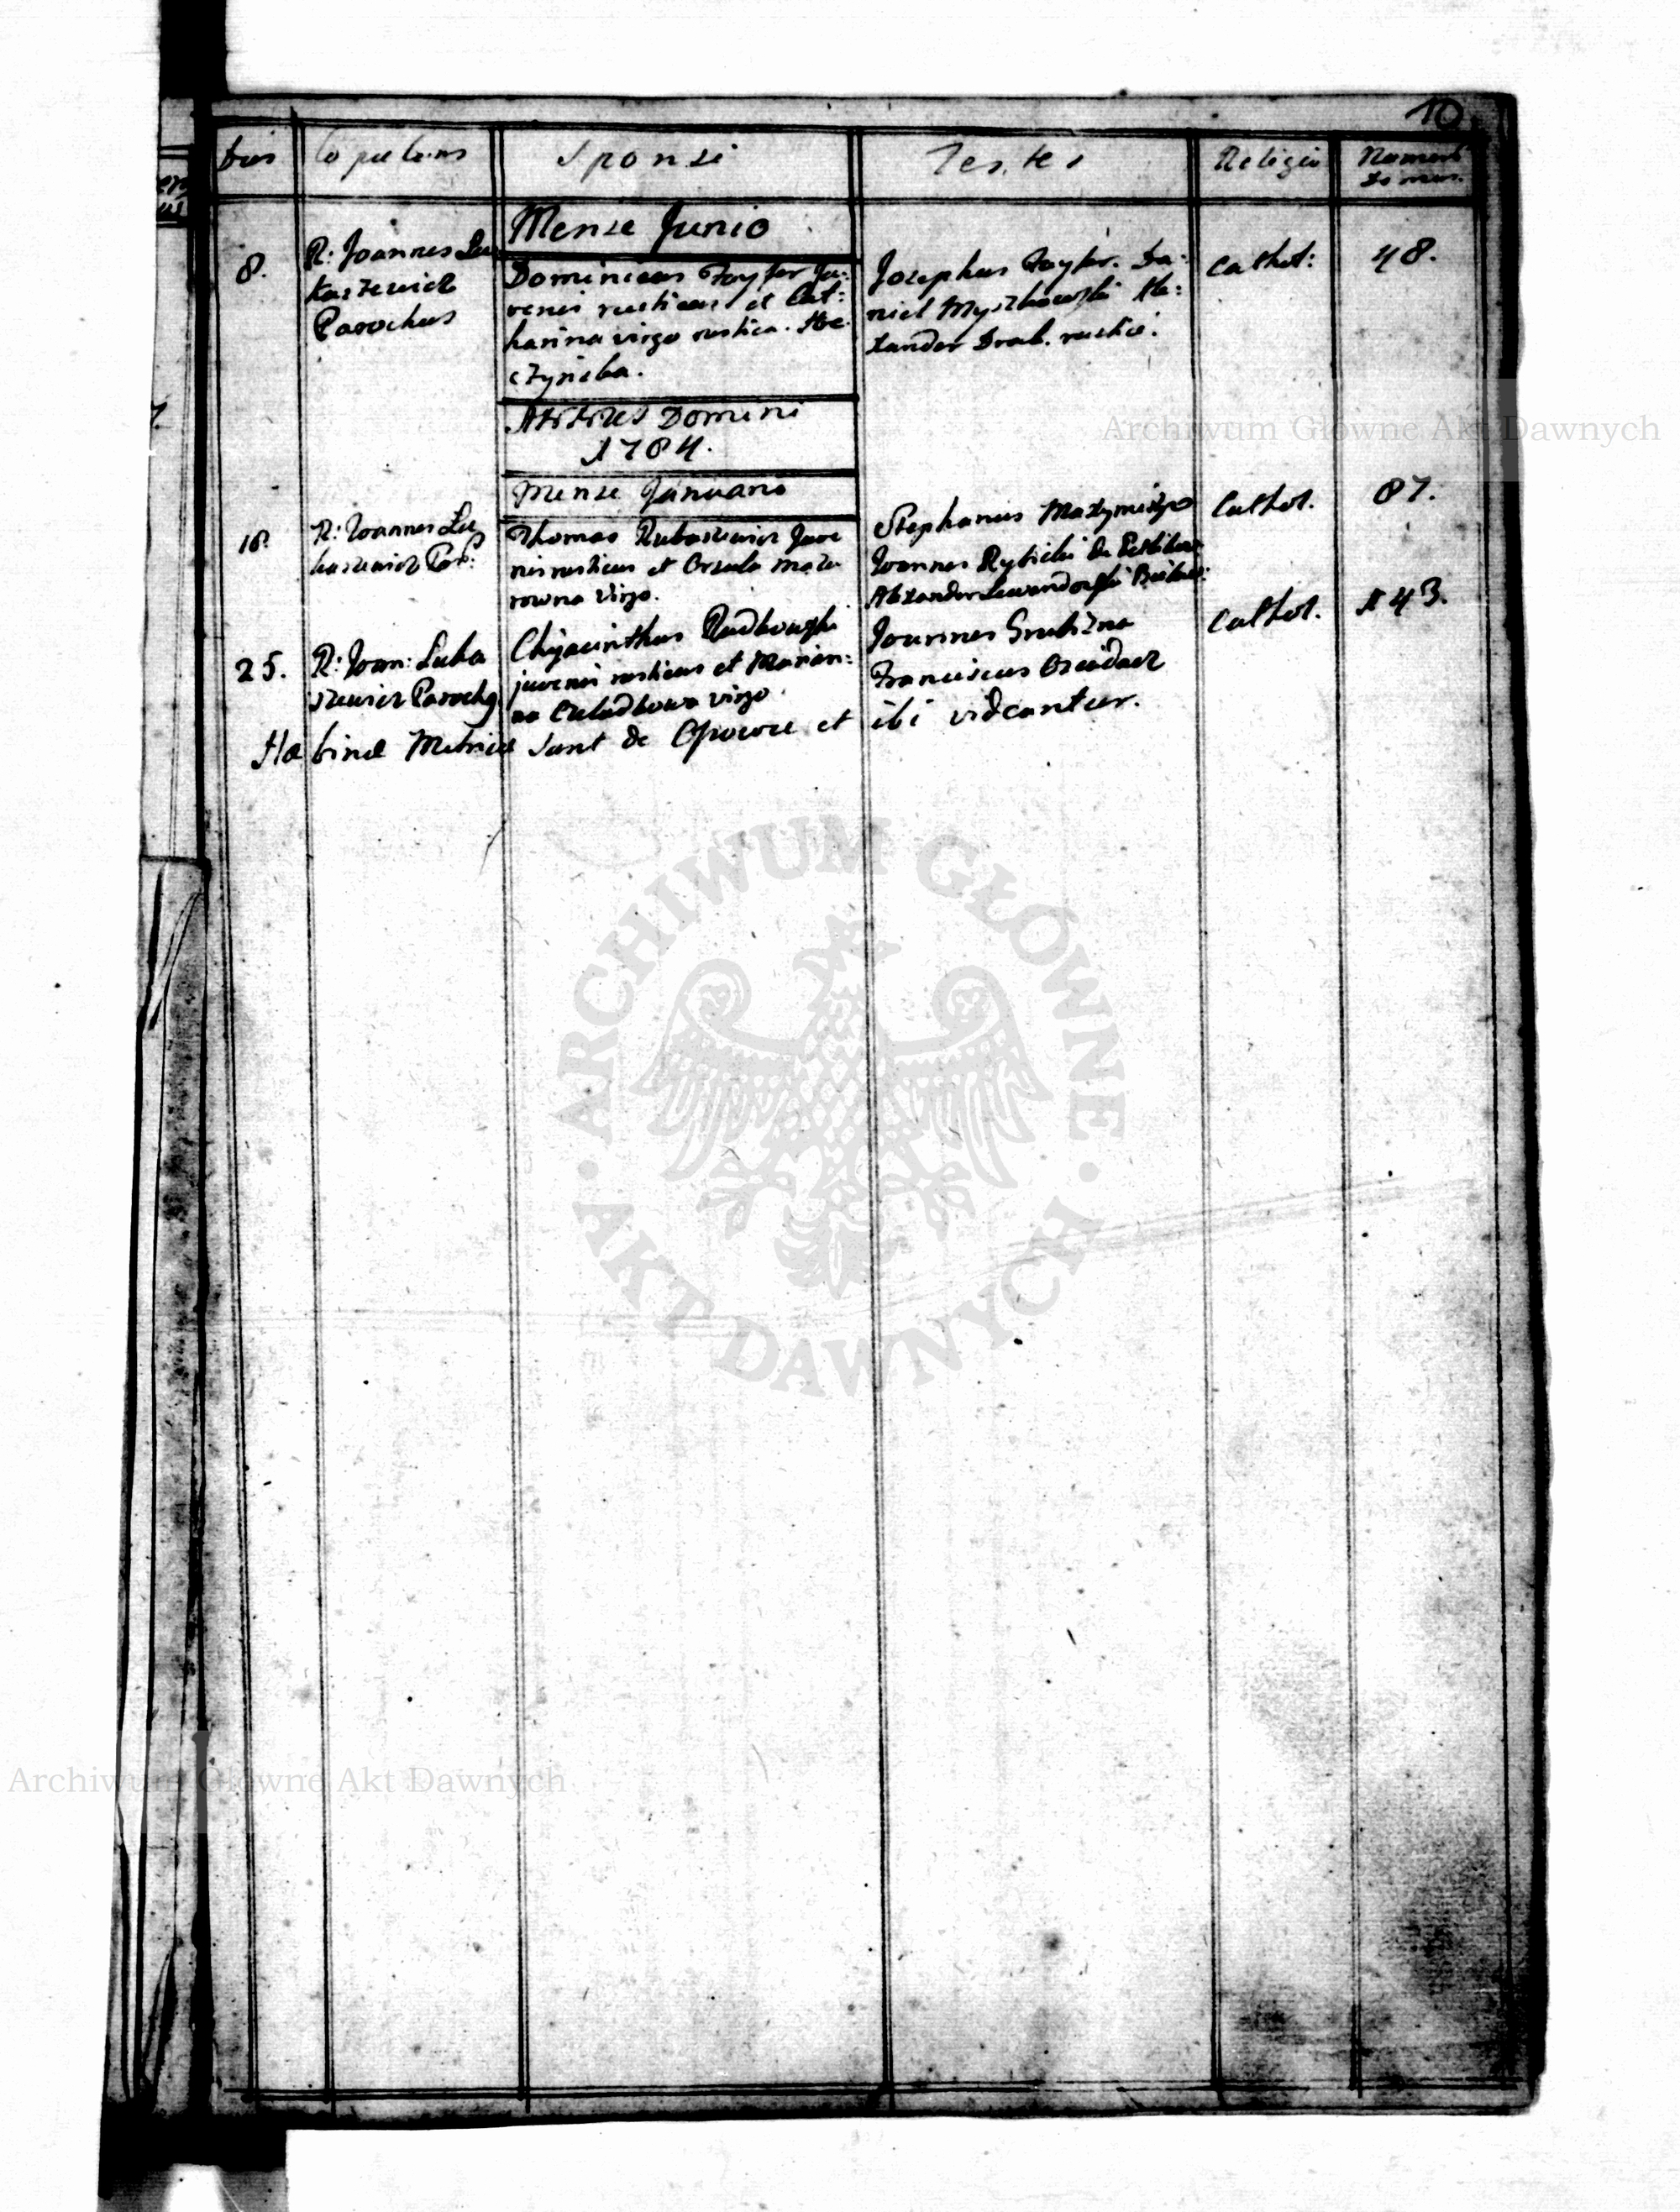 10
Copulans Sponsi Testes Religio
Mense Junio
8. R: Joannes Lu
kaszewicz
Parochus
Dominicus Fayfer Ju:
venis rusticus et Cat:
harina virgo rustica.
Josephus Fayfer. Da:
niel Myszkowski Ale:
xander Drab. rustici.
Cathol: 48.
Annus Domini
1784.
Mense Januario
18. R: Joannes Lu
kaszewicz Par:
Thomas Rubaszewicz Juve
nis rusticus et Orsula
rowna virgo.
Stephanus
Joannes Rybicki de
Alexander Lewandowski
Cathol. 87.
25. R: Joan: Luka
szewicz Parochus
Chyacinthus Rudkowski
juvenis rusticus et Marian:
na virgo.
Joannes Grubizna
Franciscus
Cathol. N 43.
Ha binae Metricae sunt de Oporow et ibi videantur.
ARCHIWUM GŁÓWNE · AKT DAWNYCH ·
Archiwum Główne Akt Dawnych
Archiwum Główne Akt Dawnych